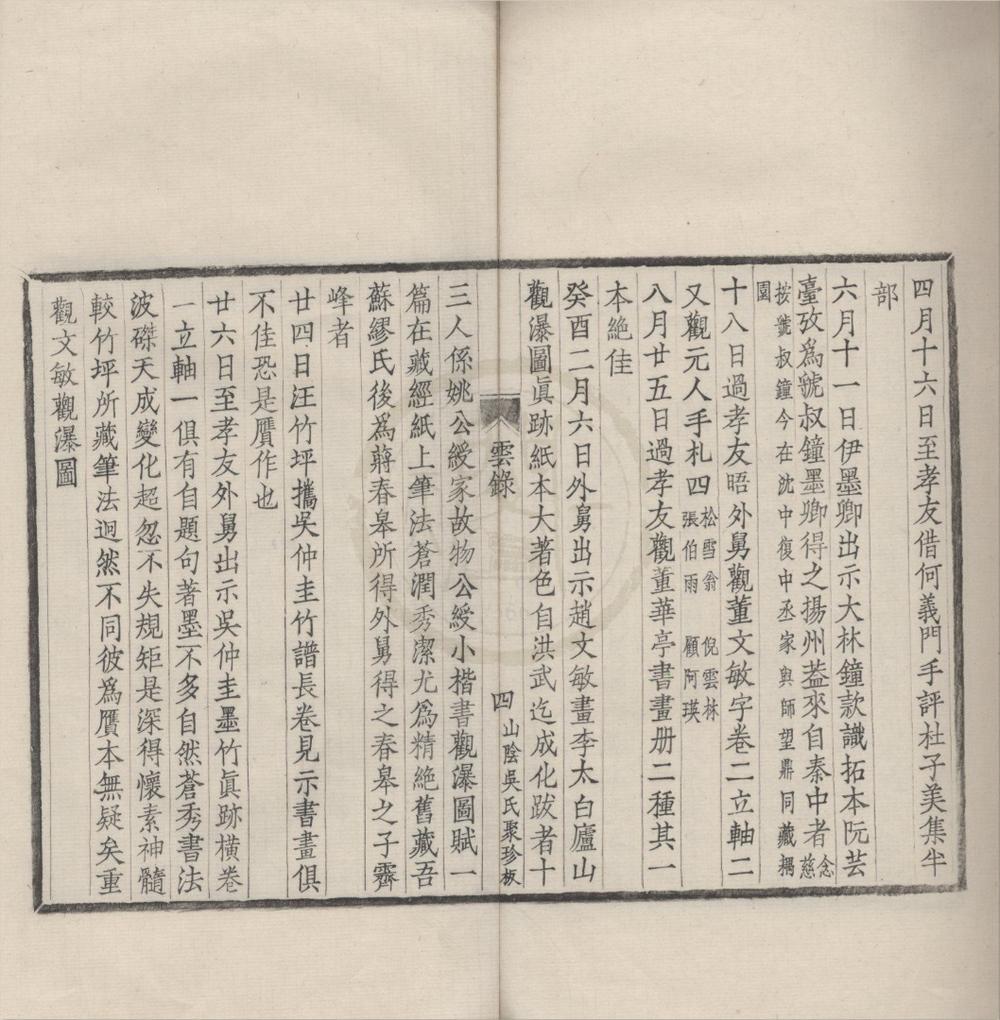 四月十六日至孝友借何義門手評杜子美集半
部
六月十一日伊墨卿出示大林鐘款識拓本阮芸
臺攷爲虢叔鐘墨卿得之揚州葢來自秦中者念慈
按虢叔鐘今在沈中復中丞家與師望鼎同藏耦
園
十八日過孝友晤外舅觀董文敏字卷二立軸二
又觀元人手札四松雪翁 倪雲林張伯雨 顧阿瑛
八月廿五日過孝友觀董華亭書畫册二種其一
本絶佳
癸酉二月六日外舅出示趙文敏畫李太白廬山
觀瀑圖眞跡紙本大著色自洪武迄成化跋者十
雲錄
四
山陰吳氏聚珍板
三人係姚公綬家故物公綬小楷書觀瀑圖賦一
篇在藏經紙上筆法蒼潤秀潔尤爲精絶舊藏吾
蘇繆氏後爲蔣春皋所得外舅得之春皋之子霽
峰者
廿四日汪竹坪攜吳仲圭竹譜長卷見示書畫俱
不佳恐是贋作也
廿六日至孝友外舅出示吳仲圭墨竹眞跡橫卷
一立軸一俱有自題句著墨不多自然蒼秀書法
波磔天成變化超忽不失規矩是深得懷素神髓
較竹坪所藏筆法迥然不同彼爲贋本無疑矣重
觀文敏觀瀑圖